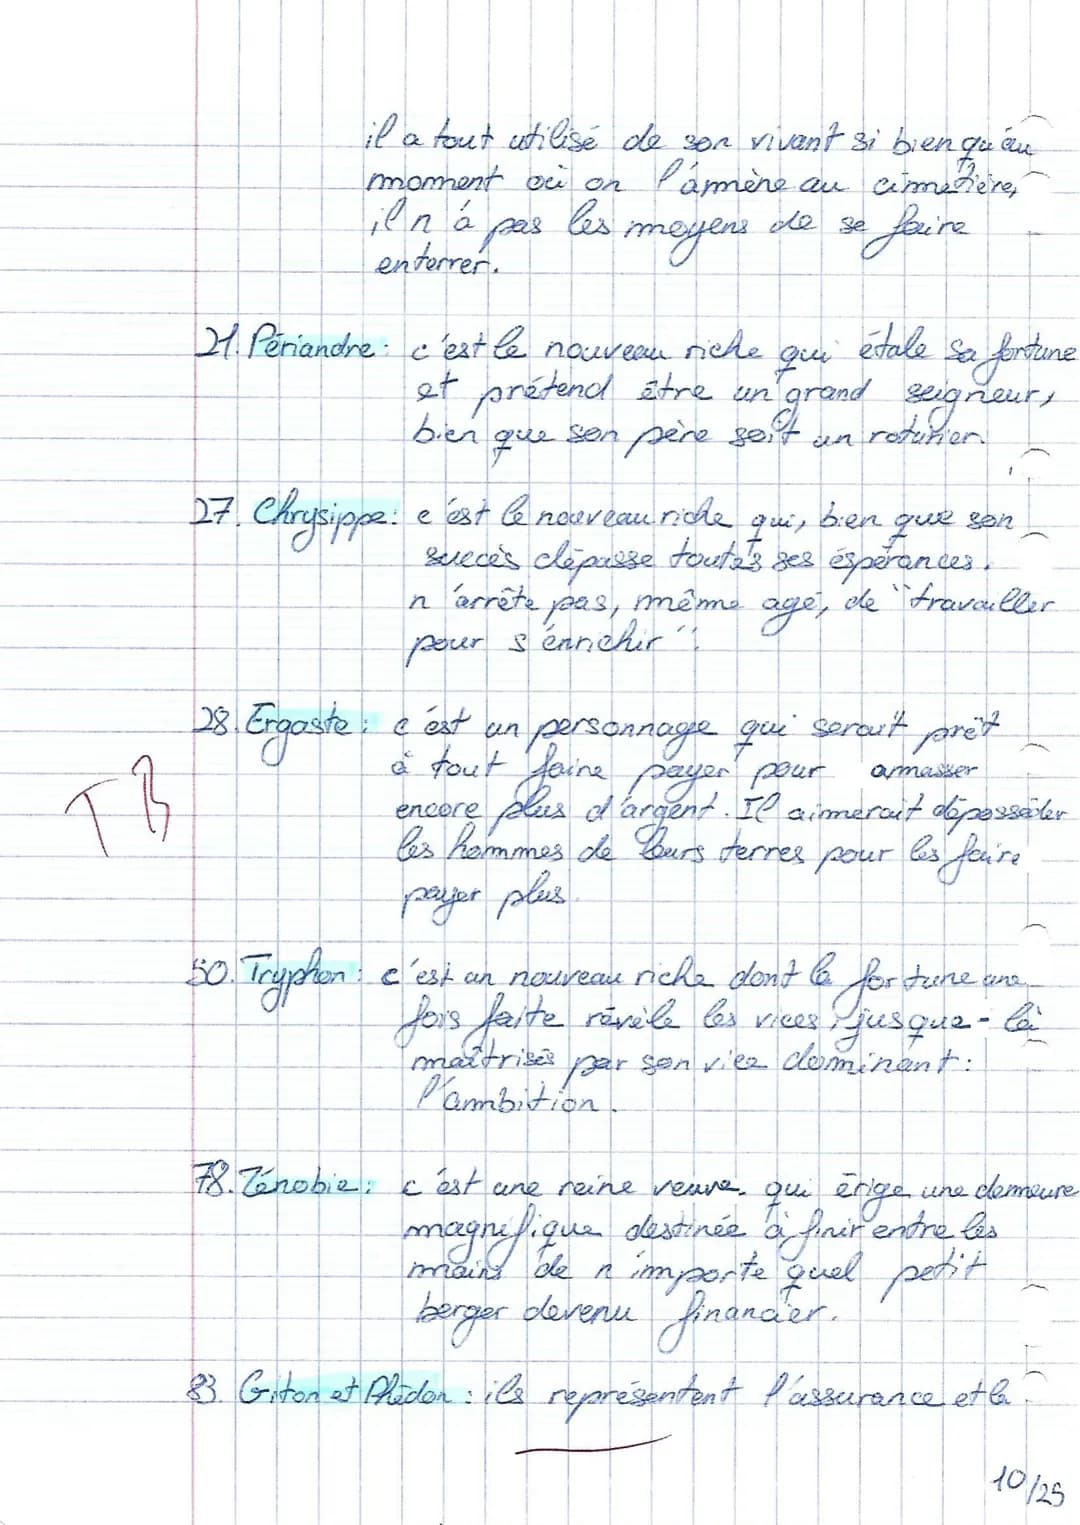 il a tout utilisé de son vivant si bien qu'au
moment où on l'amène au cimetière,
il n'a pas les moyens de se faire
enterrer.
21. Périandre: c'est le nouveau riche qui étale sa fortune
et prétend être un grand seigneur,
bien que son père soit un roturier.
27. Chrysippe: c'est le nouveau riche qui, bien que son
succès dépasse toutes ses espérances,
n'arrête pas, même agé, de "travailler
pour s'enrichir".
28. Ergaste: c'est un personnage qui serait prêt
à tout faire payer pour amasser
encore plus d'argent. Il aimerait déposséder
les hommes de leurs terres pour les faire
payer plus.
TB
50. Tryphon: c'est un nouveau riche dont la fortune une
fois faite révèle les vices, jusque-là
maîtrisés par son vice dominant:
l'ambition.
78. Zénobie: c'est une reine veuve qui érige une demeure
magnifique destinée à finir entre les
mains de n'importe quel petit
berger devenu financier.
83. Giton et Phédon: ils représentent l'assurance et la
10/25